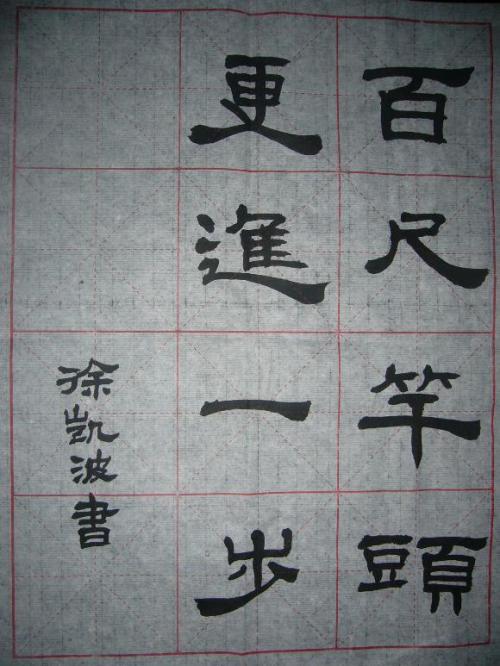 百尺竿頭
更進一步
徐凯波書